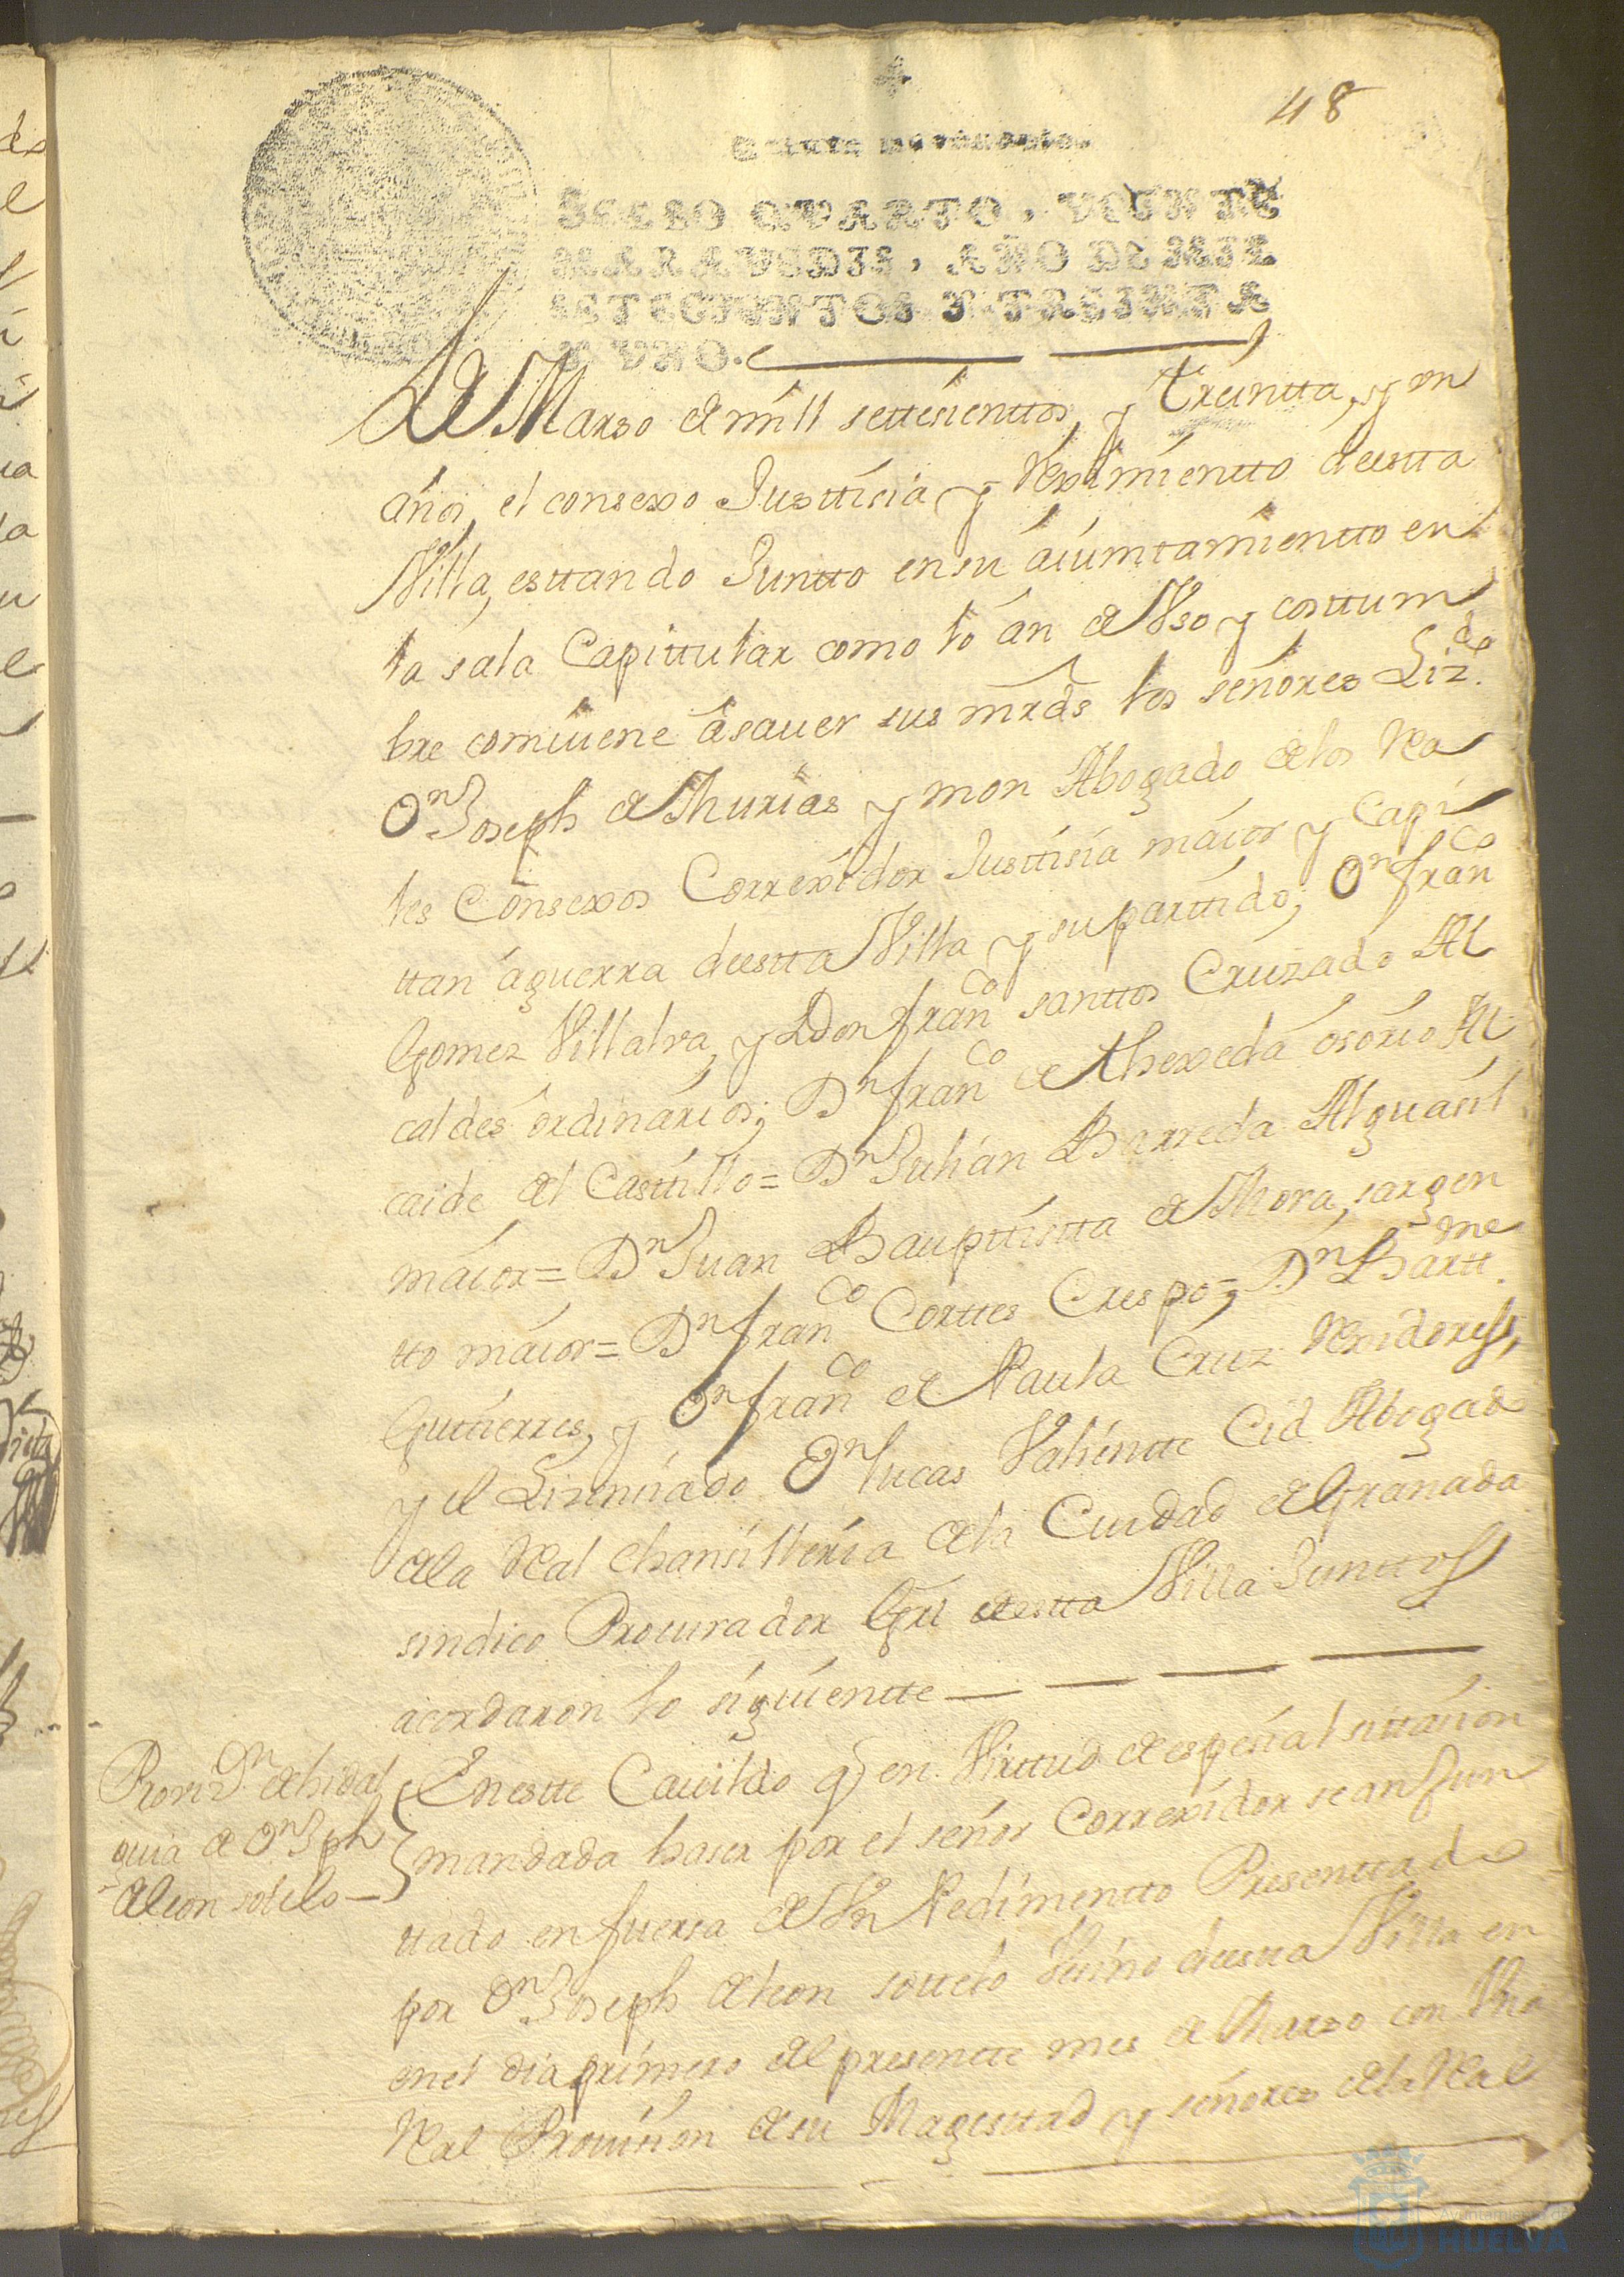 48
SELLO QVARTO, VEINTE
MARAVEDIS, AÑO DE MIL
SETECIENTOS Y TREINTA
Y VNO.
de Marzo de mill settesienttos, y treintta, y un
años, el consexo Justtisia y Reximientto deestta
Villa, esttando Juntto en su aiuntamientto en
la sala Capittular como lo án de Vso y costtum
bre comviene ásaver sus mrds los señores Lizdo.
Dn Joseph de Thurias y mon Abogado de los Rea
les Consexos Correxidor Justtisia máior y Capi
ttan águerra deestta Villa y su parttido; Dn franco
Gomez Villalva, y Don franco santtos Cruzado Al
caldes ordinários; Dn franco de Thexeda ósorio Al
caide del Casttillo = Dn Julián Barreda Alguásil
máior = Dn Juan Baupttistta de Mora, sargen
tto máior = Dn franco Corttes Crespo = Dn Barttme.
Guttierres, y Dn franco de Paula Cruz Rexidores,
y el Lizenciado Dn lucas Valientte Cid Abogado
de la Real chansilleria de la Ciudad de Granada
sindico Procurador Grl deestta Villa Junttos
acordaron lo siguientte
Provizn. de hidal
guia de Dn Jph
de leon sotelo
En estte Cavildo q en Virttud de espesial sittásion
mandada haser por el señor Correxidor se an Jun
ttado en fuersa de Vn Pedimentto Presenttado
por Dn Joseph de leon sottelo Vesino deestta Villa en
en el dia primero del presentte mes de Marzo con Vna
Real Provision de su Magesttad y señores de la Real
Ayuntamiento de
HUELVA